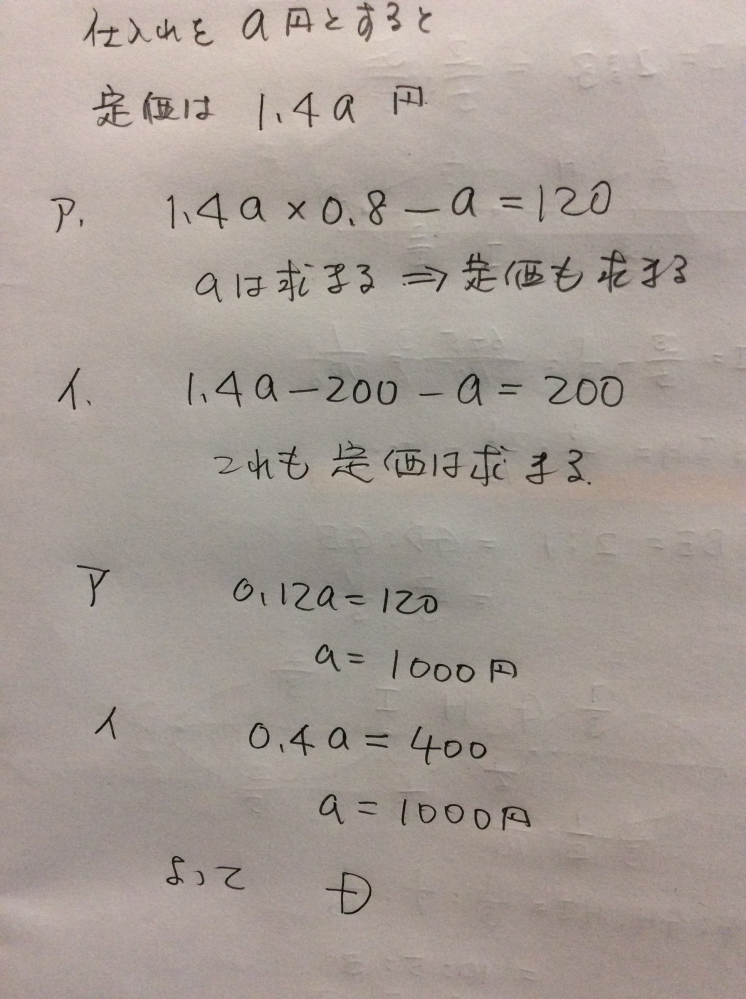 仕入れを a 円とすると
定価は 1.4a 円
ア. 1.4a × 0.8 − a = 120
aは求まる ⇒ 定価も求まる
イ. 1.4a − 200 − a = 200
これも 定価は求まる.
ア 0.12a = 120
a = 1000円
イ 0.4a = 400
a = 1000円
よって D